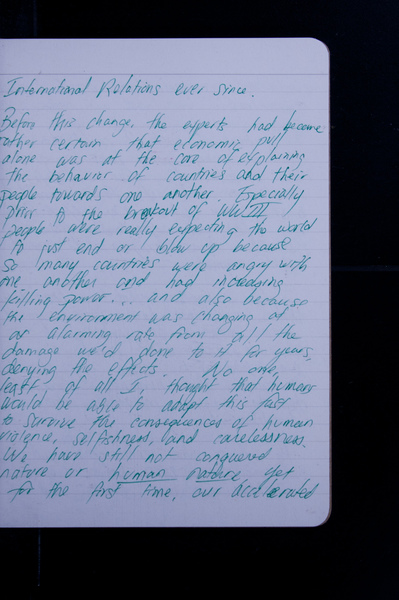 International Relations ever since.
Before this change, the experts had become
rather certain that economic pull
alone was at the core of explaining
the behavior of countries and their
people towards one another. Especially
prior to the breakout of WWIII
people were really expecting the world
to just end or blow up because
so many countries were angry with
one another and had increasing
killing power... and also because
the environment was changing at
an alarming rate from all the
damage we'd done to it for years,
denying the effects. No one,
least of all I, thought that humans
would be able to adapt this fast
to survive the consequences of human
violence, selfishness, and carelessness.
We have still not conquered
nature or human nature yet
for the first time, our accelerated